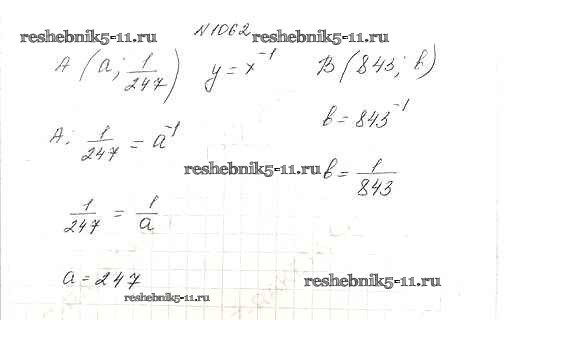 N1062
reshebnik5-11.ru reshebnik5-11.ru
A (a; 1/247) y = x^-1 B (843; b)
A: 1/247 = a^-1 b = 843^-1
reshebnik5-11.ru b = 1/843
1/247 = 1/a
a = 247
reshebnik5-11.ru
reshebnik5-11.ru